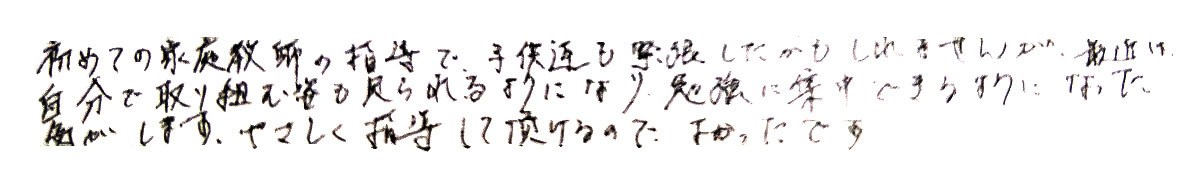 初めての家庭教師の指導で、子供達も緊張したかもしれませんが、最近は
自分で取り組む姿も見られるようになり、勉強に集中できるようになった
気がします。やさしく指導して頂けるので よかったです